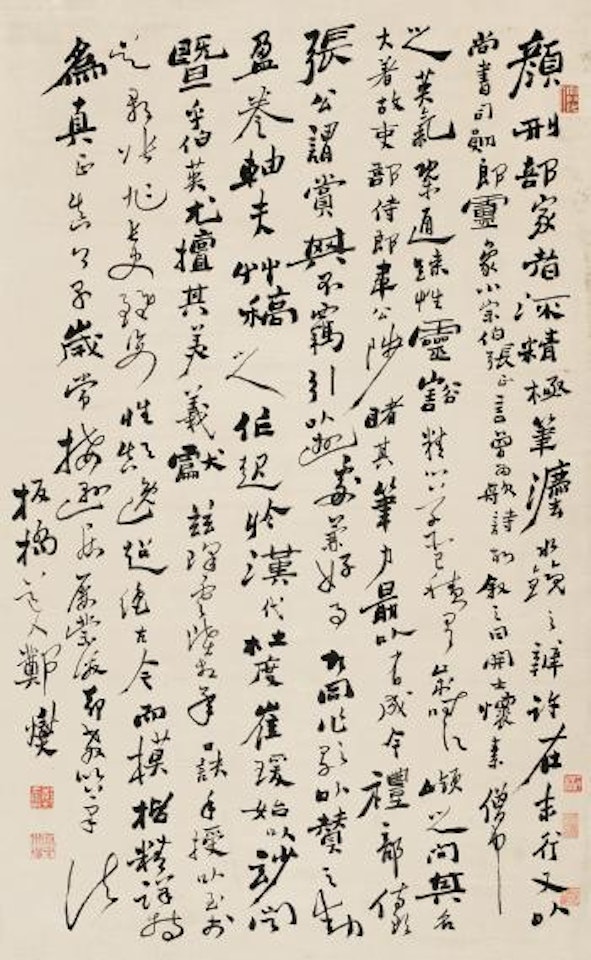 顔刑部家者流精極筆灋水鏡之辯許在末行又以
尚書司勛郎盧象小宗伯張正言曾為歌詩故敘之曰開士懷素僧中
之英氣槩通踈性靈豁精心草聖積有歲時江嶺之間其名
大著故吏部侍郎韋公陟睹其筆力最以有成今禮部侍郎
張公謂賞其不羈引以遊處兼好事者同作歌以贊之動
盈卷軸夫艸稿之作起於漢代杜度崔瑗始以妙聞
暨乎伯英尤擅其美羲獻茲降虞陸相承口訣手授以至於
吳郡張旭長史雖姿性顛逸超絕古今而模楷精詳特
為真正真卿早歲常接遊居屢蒙激昂教以筆法
板橋道人鄭燮